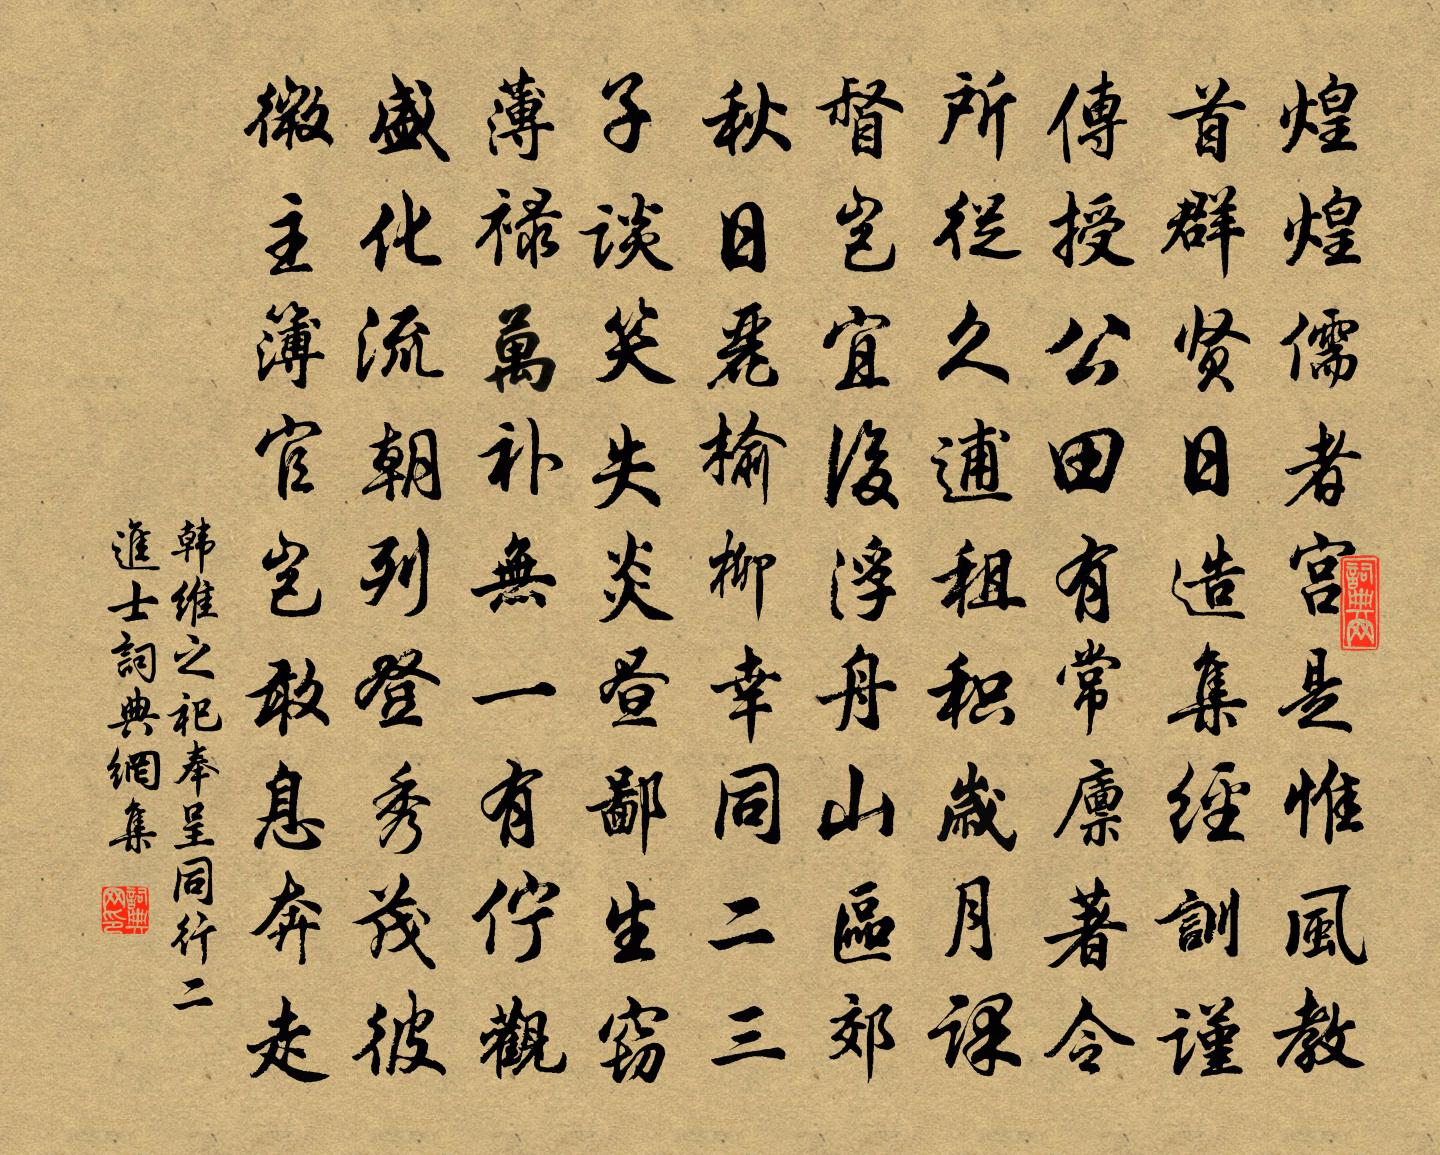 煌煌儒者宫是惟風教
首群贤日造集經訓謹
傳授公田有常廪著令
所從久逋租积歲月课
督岂宜後浮舟山區郊
秋日麗榆柳幸同二三
子談笑失炎昼鄙生窃
薄禄萬补無一有佇觀
盛化流朝列登秀茂彼
微主簿官岂敢息奔走
韩維之祀奉呈同行二
進士詞典網集
詞典网
詞典网印